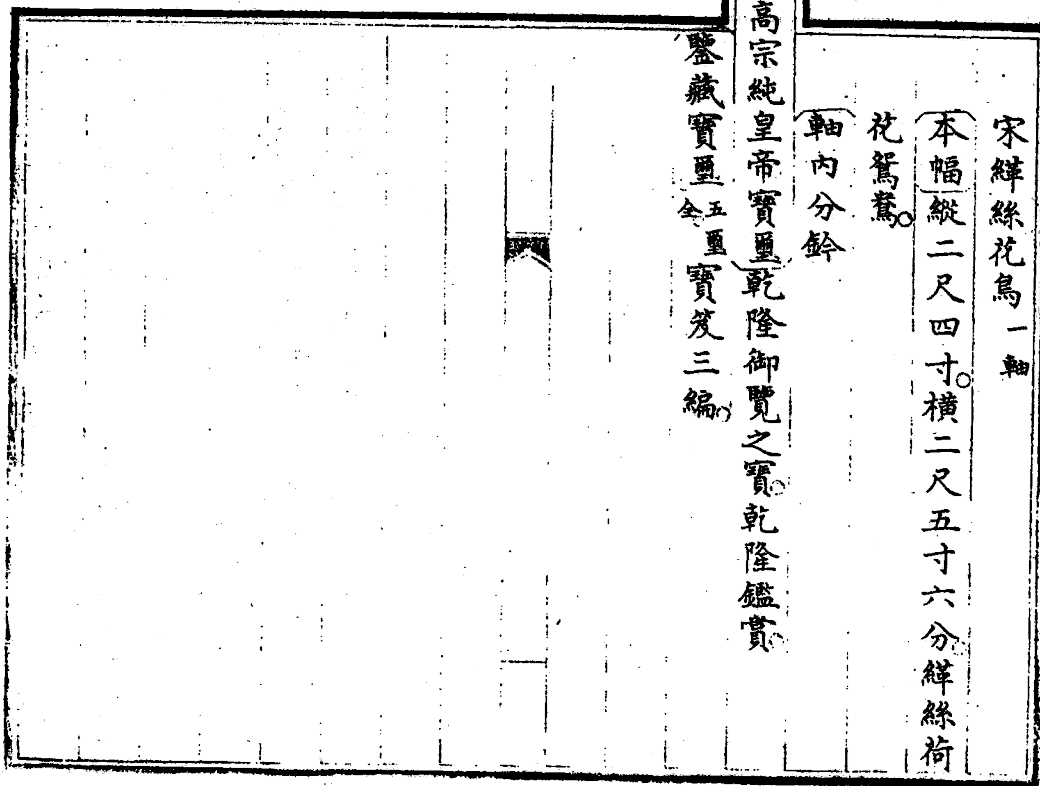 宋緙絲花鳥一軸
本幅縱二尺四寸橫二尺五寸六分緙絲荷
花鴛鴦
軸內分鈐
高宗純皇帝寶璽乾隆御覽之寶乾隆鑑賞
鑒藏寶璽五璽全寶笈三編